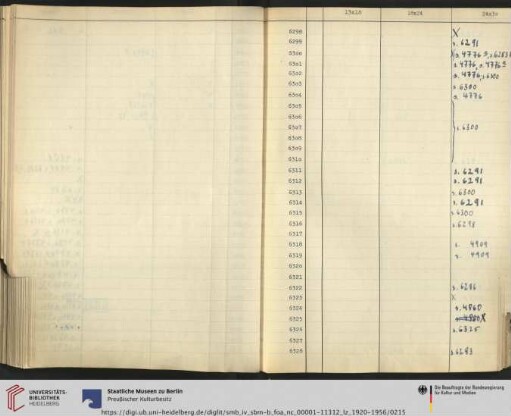 13x18 18x24 24x30
6298 X
6299 s. 6291
6300
6301 s. 4776, s. 4776a
6302 s. 4776, s. 6300
6303 s. 6300
6304 s. 4776
6305
6306
6307 s. 6300
6308
6309
6310
6311 s. 6291
6312 s. 6291
6313 s. 6300
6314 s. 6291
6315 s. 6300
6316 s. 6298
6317
6318 s. 4909
6319 s. 4909
6320
6321
6322 s. 6286
6323 X
6324 s. 4860
6325 X
6326 s. 6325
6327
6328 s. 6293
UNIVERSITÄTS-
BIBLIOTHEK
HEIDELBERG
Staatliche Museen zu Berlin
Preußischer Kulturbesitz
Die Beauftragte der Bundesregierung
für Kultur und Medien
https://digi.ub.uni-heidelberg.de/diglit/smb_iv_sbm-b_foa_nc_00001-11312_lz_1920-1956/0215